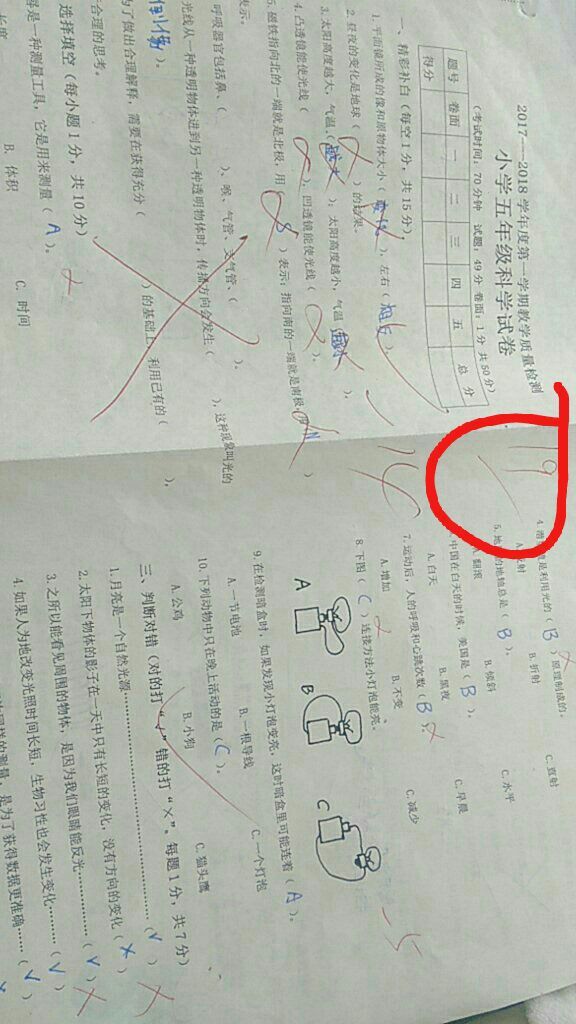 2017——2018学年度第一学期教学质量检测
小学五年级科学试卷
(考试时间：70分钟 试题：49分 卷面：1分 共50分)
题号 卷面 一 二 三 四 五 总分
得分
一、精彩补白(每空1分，共15分)
1.平面镜所成的像和原物体大小( )，左右(相反)。
2.昼夜的变化是地球( )的结果。
3.太阳高度越大，气温( )；太阳高度越小，气温( )。
4.凸透镜能使光线( )，凹透镜能使光线( )。
5.磁铁指向北的一端就是北极，用( S )表示；指向南的一端就是南极，用( N )
表示。
呼吸器官包括鼻、( )、喉、气管、支气管、( )。
光线从一种透明物体进到另一种透明物体时，传播方向会发生( )，这种现象叫光的
)。
为了做出合理解释，需要在获得充分( )的基础上，利用已有的( )，
合理的思考。
选择填空(每小题1分，共10分)
是一种测量工具，它是用来测量( A )。
B. 体积 C. 时间
19
14
4.潜 是利用光的( B )原理制成的。
射 B.折射 C.直射
5.地 的地轴总是( B )。
A.翻滚 B.倾斜 C.水平
中国在白天的时候，美国是( B )。
A.白天 B.黑夜 C.早晨
7.运动后，人的呼吸和心跳次数( B )。
A.增加 B.不变 C.减少
8.下图( C )连接方法小灯泡能亮。
A B C
9.在检测暗盒时，如果发现小灯泡变亮，这时暗盒里可能连着( A )。
A.一节电池 B.一根导线 C.一个灯泡
10.下列动物中只在晚上活动的是( C )。
A.公鸡 B.小狗 C.猫头鹰
-5
三、判断对错(对的打"√"错的打"×"。每题1分，共7分)
1.月亮是一个自然光源……( √ )
2.太阳下物体的影子在一天中只有长短的变化，没有方向的变化( × )
3.之所以能看见周围的物体，是因为我们眼睛能反光……( √ )
4.如果人为地改变光照时间长短，生物习性也会发生变化……( √ )
同样的测量，是为了获得数据更准确……( √ )